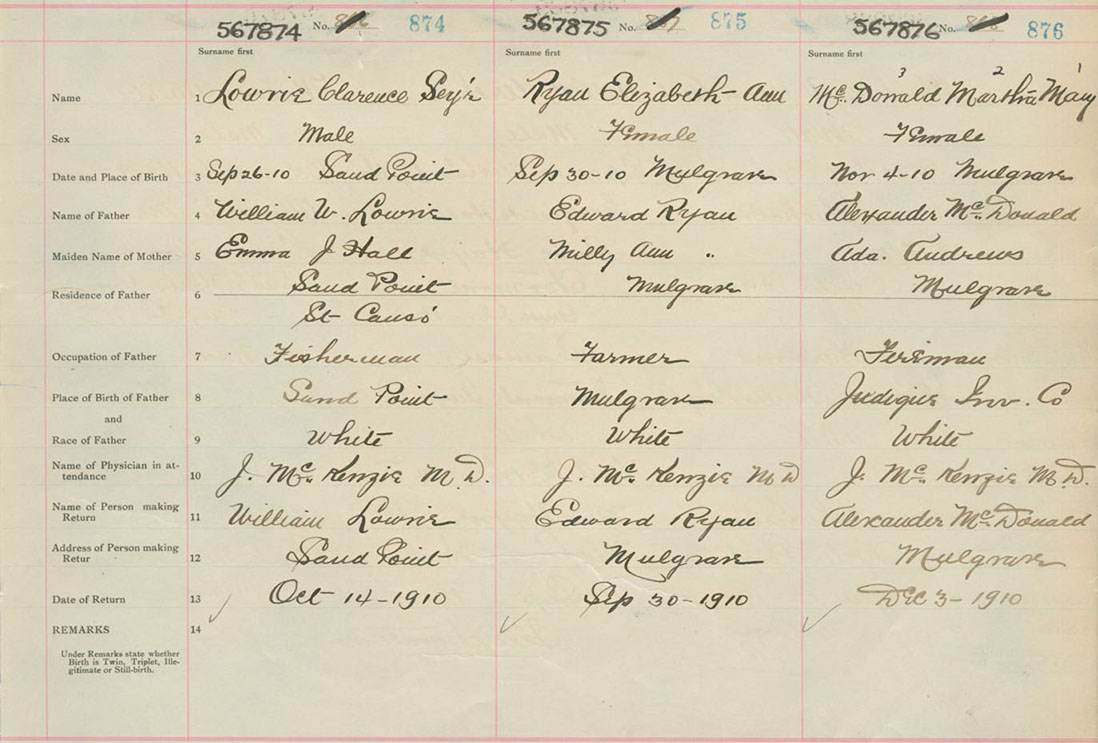 567874 No. 874 567875 No. 875 567876 No. 876
Surname first Surname first Surname first
3 2 1
Name 1 Lowrie Clarence Ryan Elizabeth Ann McDonald Martha Mary
Sex 2 Male Female Female
Date and Place of Birth 3 Sep 26-10 Sand Point Sep 30-10 Mulgrave Nov 4-10 Mulgrave
Name of Father 4 William W. Lowrie Edward Ryan Alexander McDonald
Maiden Name of Mother 5 Emma J Hall Milly Ann " Ada. Andrews
Residence of Father 6 Sand Point Mulgrave Mulgrave
St Canso
Occupation of Father 7 Fisherman Farmer Fireman
Place of Birth of Father 8 Sand Point Mulgrave Judique Inv. Co
and
Race of Father 9 White White White
Name of Physician in at-
tendance 10 J. McKenzie M.D. J. McKenzie M D J. McKenzie M.D.
Name of Person making
Return 11 William Lowrie Edward Ryan Alexander McDonald
Address of Person making
Retur 12 Sand Point Mulgrave Mulgrave
Date of Return 13 Oct 14-1910 Sep 30-1910 Dec 3-1910
REMARKS 14
Under Remarks state whether
Birth is Twin, Triplet, Ille-
gitimate or Still-birth.